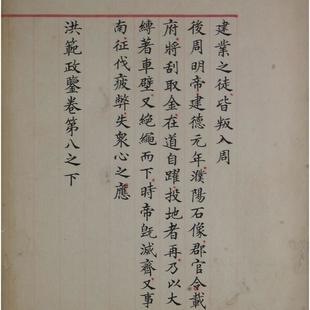 建業之徒皆叛入周
後周明帝建德元年濮陽石像郡官令載
府將刮取金在道自躍投地者再乃以大
繩縛著車壁又絶繩而下時帝旣滅齊又事
南征伐疲弊失衆心之應
洪範政鑒卷第八之下